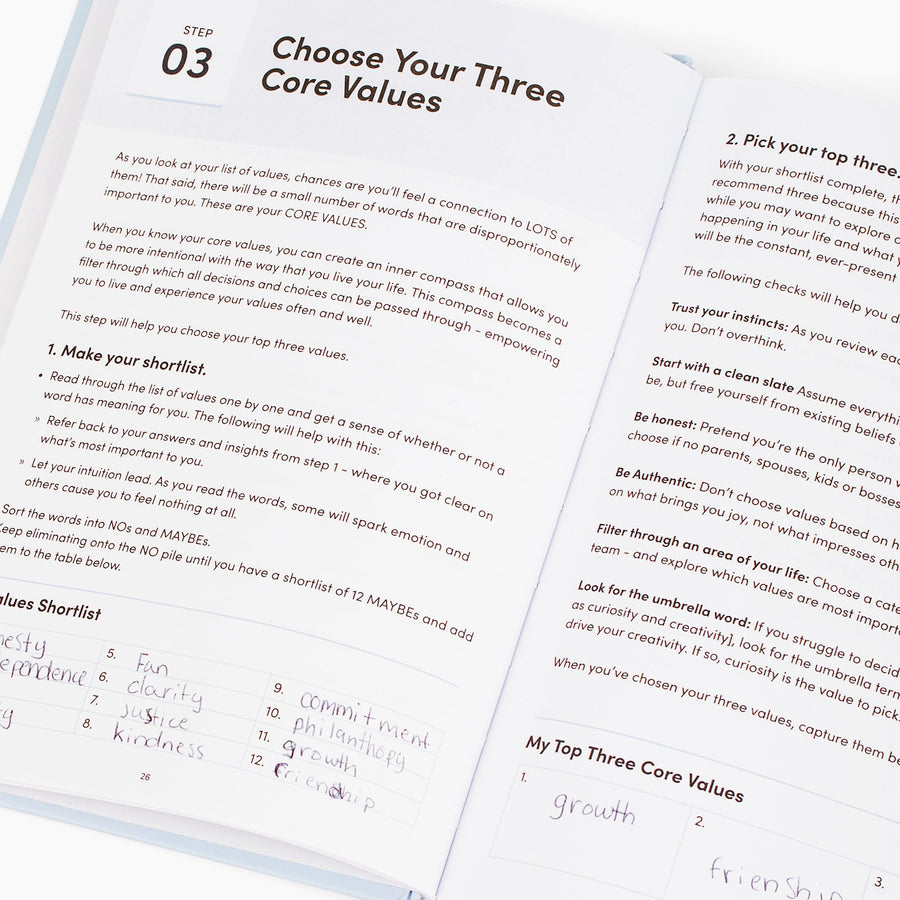 STEP
03
Choose Your Three
Core Values
As you look at your list of values, chances are you'll feel a connection to LOTS of
them! That said, there will be a small number of words that are disproportionately
important to you. These are your CORE VALUES.
When you know your core values, you can create an inner compass that allows you
to be more intentional with the way that you live your life. This compass becomes a
filter through which all decisions and choices can be passed through - empowering
you to live and experience your values often and well.
This step will help you choose your top three values.
1. Make your shortlist.
• Read through the list of values one by one and get a sense of whether or not a
word has meaning for you. The following will help with this:
» Refer back to your answers and insights from step 1 - where you got clear on
what's most important to you.
» Let your intuition lead. As you read the words, some will spark emotion and
others cause you to feel nothing at all.
Sort the words into NOs and MAYBEs.
Keep eliminating onto the NO pile until you have a shortlist of 12 MAYBEs and add
to the table below.
Shortlist
5. Fun
6. clarity
7. justice
8. kindness
9. commitment
10. philanthopy
11. growth
12. friendship
26
2. Pick your top three.
With your shortlist complete,
recommend three because this
while you may want to explore
happening in your life and what
will be the constant, ever-present
The following checks will help you
Trust your instincts: As you review
you. Don't overthink.
Start with a clean slate Assume
be, but free yourself from existing beliefs
Be honest: Pretend you're the only person
choose if no parents, spouses, kids or bosses
Be Authentic: Don't choose values based on
on what brings you joy, not what impresses
Filter through an area of your life: Choose a
team - and explore which values are most
Look for the umbrella word: If you struggle to
as curiosity and creativity], look for the umbrella
drive your creativity. If so, curiosity is the value to pick.
When you've chosen your three values, capture them
My Top Three Core Values
1. growth
2. friendship
3.